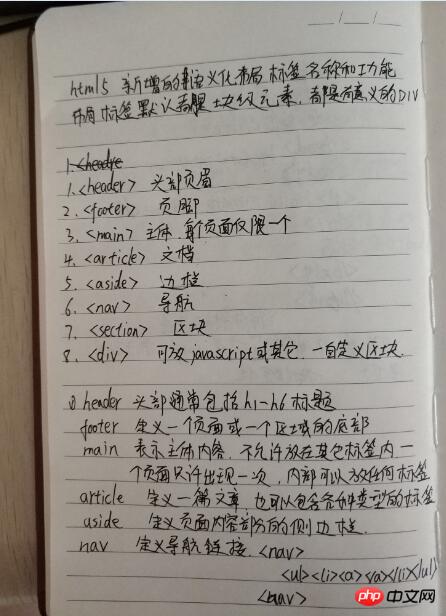 html5 新增的语义化布局标签名称和功能
布局标签默认都是块级元素，都是有意义的DIV
1.<headre
1.<header> 头部页眉
2.<footer> 页脚
3.<main> 主体，每个页面仅限一个
4.<article> 文档
5.<aside> 边栏
6.<nav> 导航
7.<section> 区块
8.<div> 可放javascript或其它，一自定义区块.
header 头部通常包括h1-h6标题
footer 定义一个页面或一个区域的底部
main 表示主体内容，不允许放在其它标签内一
个页面只许出现一次，内部可以放任何标签
article 定义一篇文章，也可以包含各种类型的标签
aside 定义页面内容部分的侧边栏.
nav 定义导航链接.<nav>
<ul><li><a></a></li></ul>
<nav>
php 中文网